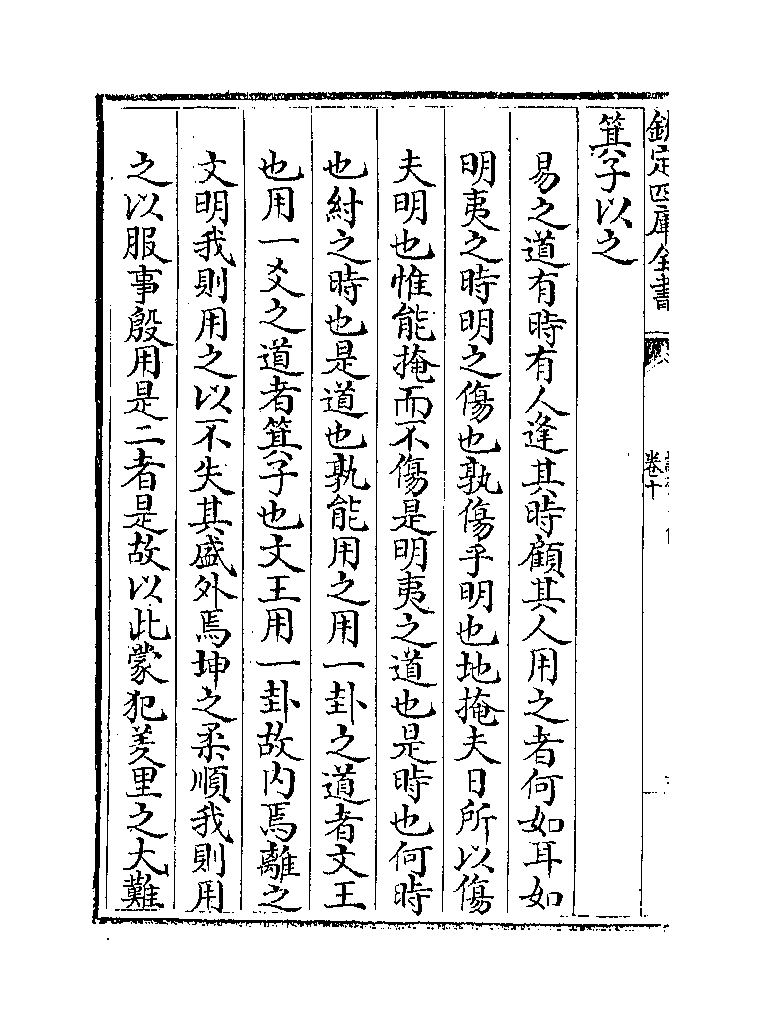 欽定四庫全書
卷十
箕子以之
易之道有時有人逢其時顧其人用之者何如耳如
明夷之時明之傷也孰傷乎明也地掩夫日所以傷
夫明也惟能掩而不傷是明夷之道也是時也何時
也紂之時也是道也孰能用之用一卦之道者文王
也用一爻之道者箕子也文王用一卦故内焉離之
文明我則用之以不失其盛外焉坤之柔順我則用
之以服事殷用是二者是故以此蒙犯羑里之大難